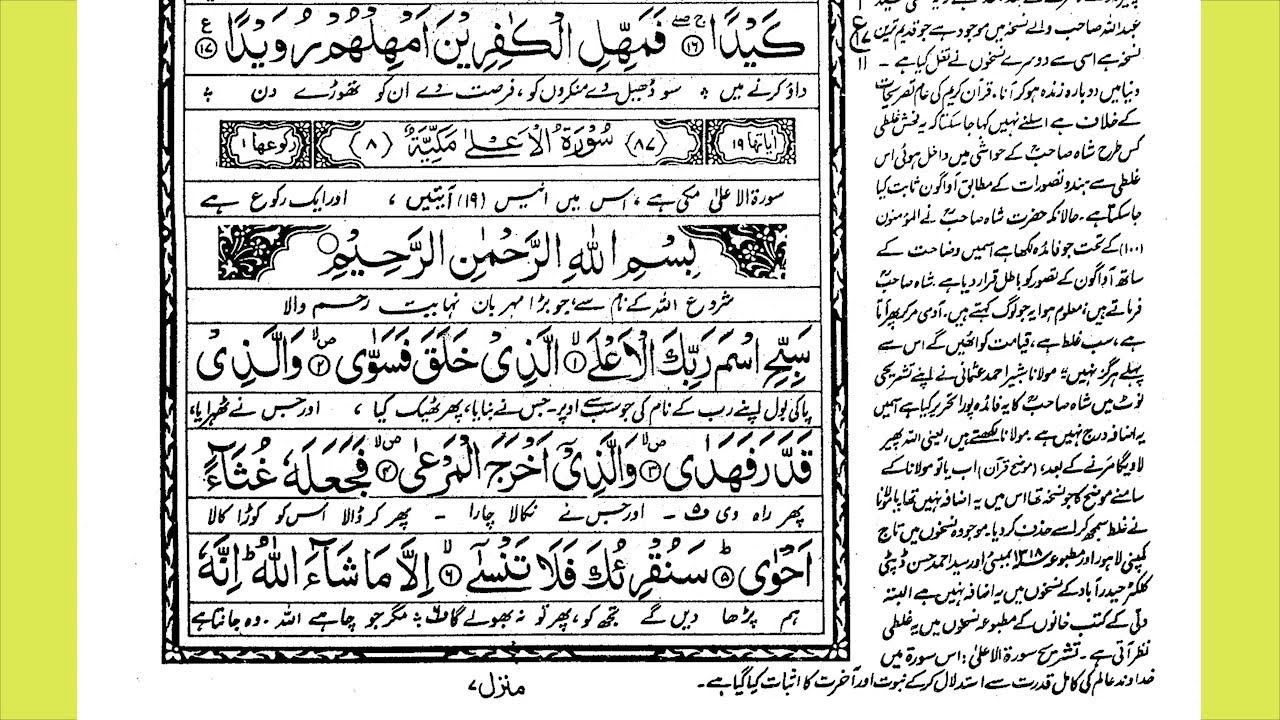 كَيْدًا ۝١٦ فَمَهِّلِ الْكٰفِرِيْنَ اَمْهِلْهُمْ رُوَيْدًا ۝١٧
داؤ کرنے میں ۞ سو ڈھیل دے منکروں کو، فرصت دے ان کو تھوڑے دن ۞
اٰیاتها ١٩ (٨٧) سُوْرَةُ الْاَعْلٰى مَكِّيَّةٌ (٨) رکوعها ١
سورۃ الاعلیٰ مکی ہے ، اس میں انیس (١٩) آیتیں ، اور ایک رکوع ہے
بِسْمِ اللّٰهِ الرَّحْمٰنِ الرَّحِيْمِ
شروع اللہ کے نام سے، جو بڑا مہربان نہایت رحم والا
سَبِّحِ اسْمَ رَبِّكَ الْاَعْلَى ۝١ الَّذِىْ خَلَقَ فَسَوّٰى ۝٢ وَالَّذِىْ
پاکی بول اپنے رب کے نام کی جو سب سے اوپر ۔ جس نے بنایا، پھر ٹھیک کیا ، اور جس نے ٹھہرایا،
قَدَّرَ فَهَدٰى ۝٣ وَالَّذِىْٓ اَخْرَجَ الْمَرْعٰى ۝٤ فَجَعَلَهٗ غُثَآءً
پھر راہ دی ف۵ ۔ اور جس نے نکالا چارا ۔ پھر کر ڈالا اُس کو کوڑا کالا
اَحْوٰى ۝٥ سَنُقْرِئُكَ فَلَا تَنْسٰٓى ۝٦ اِلَّا مَا شَآءَ اللّٰهُ اِنَّهٗ
ہم پڑھا دیں گے تجھ کو، پھر تو نہ بھولے گا ف۶ ۞ مگر جو چاہے اللہ ۔ وہ جانتا ہے
منزل ٧
عبداللہ صاحب والے نسخہ میں موجود ہے جو قدیم ترین
نسخہ ہے اسی سے دوسرے نسخوں نے نقل کیا ہے ۔
دنیا میں دوبارہ زندہ ہو کر آنا ۔ قرآن کریم کی عام تصریحات
کے خلاف ہے اسلئے نہیں کہا جا سکتا کہ یہ فحش غلطی
کس طرح شاہ صاحبؒ کے حواشی میں داخل ہوئی اس
غلطی سے ہندو تصورات کے مطابق آواگون ثابت کیا
جا سکتا ہے ۔ حالانکہ حضرت شاہ صاحبؒ نے المؤمنون
(١٠٠) کے تحت جو فائدہ لکھا ہے اسمیں وضاحت کے
ساتھ آواگون کے تصور کو باطل قرار دیا ہے ۔ شاہ صاحبؒ
فرماتے ہیں، معلوم ہوا یہ جو لوگ کہتے ہیں ۔ آدمی مر کر پھر آتا
ہے ، سب غلط ہے ، قیامت کو اٹھیں گے اس سے
پہلے ہرگز نہیں" مولانا شبیر احمد عثمانی نے اپنے تشریحی
نوٹ میں شاہ صاحبؒ کا یہ فائدہ پورا تحریر کیا ہے اسمیں
یہ اضافہ درج نہیں ہے ۔ مولانا لکھتے ہیں، یعنی اللہ پھیر
لاویگا مرنے کے بعد، (موضح قرآن) اب یا تو مولانا کے
سامنے موضح کا جو نسخہ تھا اس میں یہ اضافہ نہیں تھا یا مولانا
نے غلط سمجھ کر اسے حذف کر دیا ۔ موجودہ نسخوں میں تاج
کمپنی لاہور اور مطبوعہ ١٣١٨ بمبئی اور سید احمد حسن ڈپٹی
کلکٹر حیدرآباد کے نسخوں میں یہ اضافہ نہیں ہے البتہ
دلّی کے کتب خانوں کے مطبوعہ نسخوں میں یہ غلطی
نظر آتی ہے ۔ تشریح سورۃ الاعلیٰ : اس سورۃ میں
خداوند عالم کی کامل قدرت سے استدلال کر کے نبوت اور آخرت کا اثبات کیا گیا ہے ۔